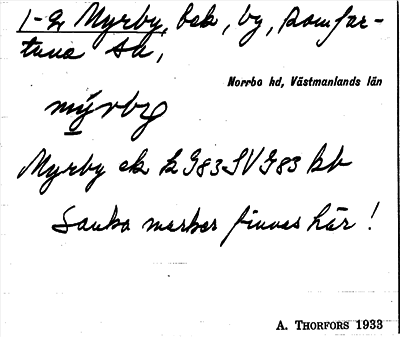 1-2 Myrby, bek, by, Romfar-
tuna sn,
Norrbo hd, Västmanlands län
mýrby
Myrby ek k G83SV G83 bb
Sanka marker finnes här!
A. THORFORS 1933